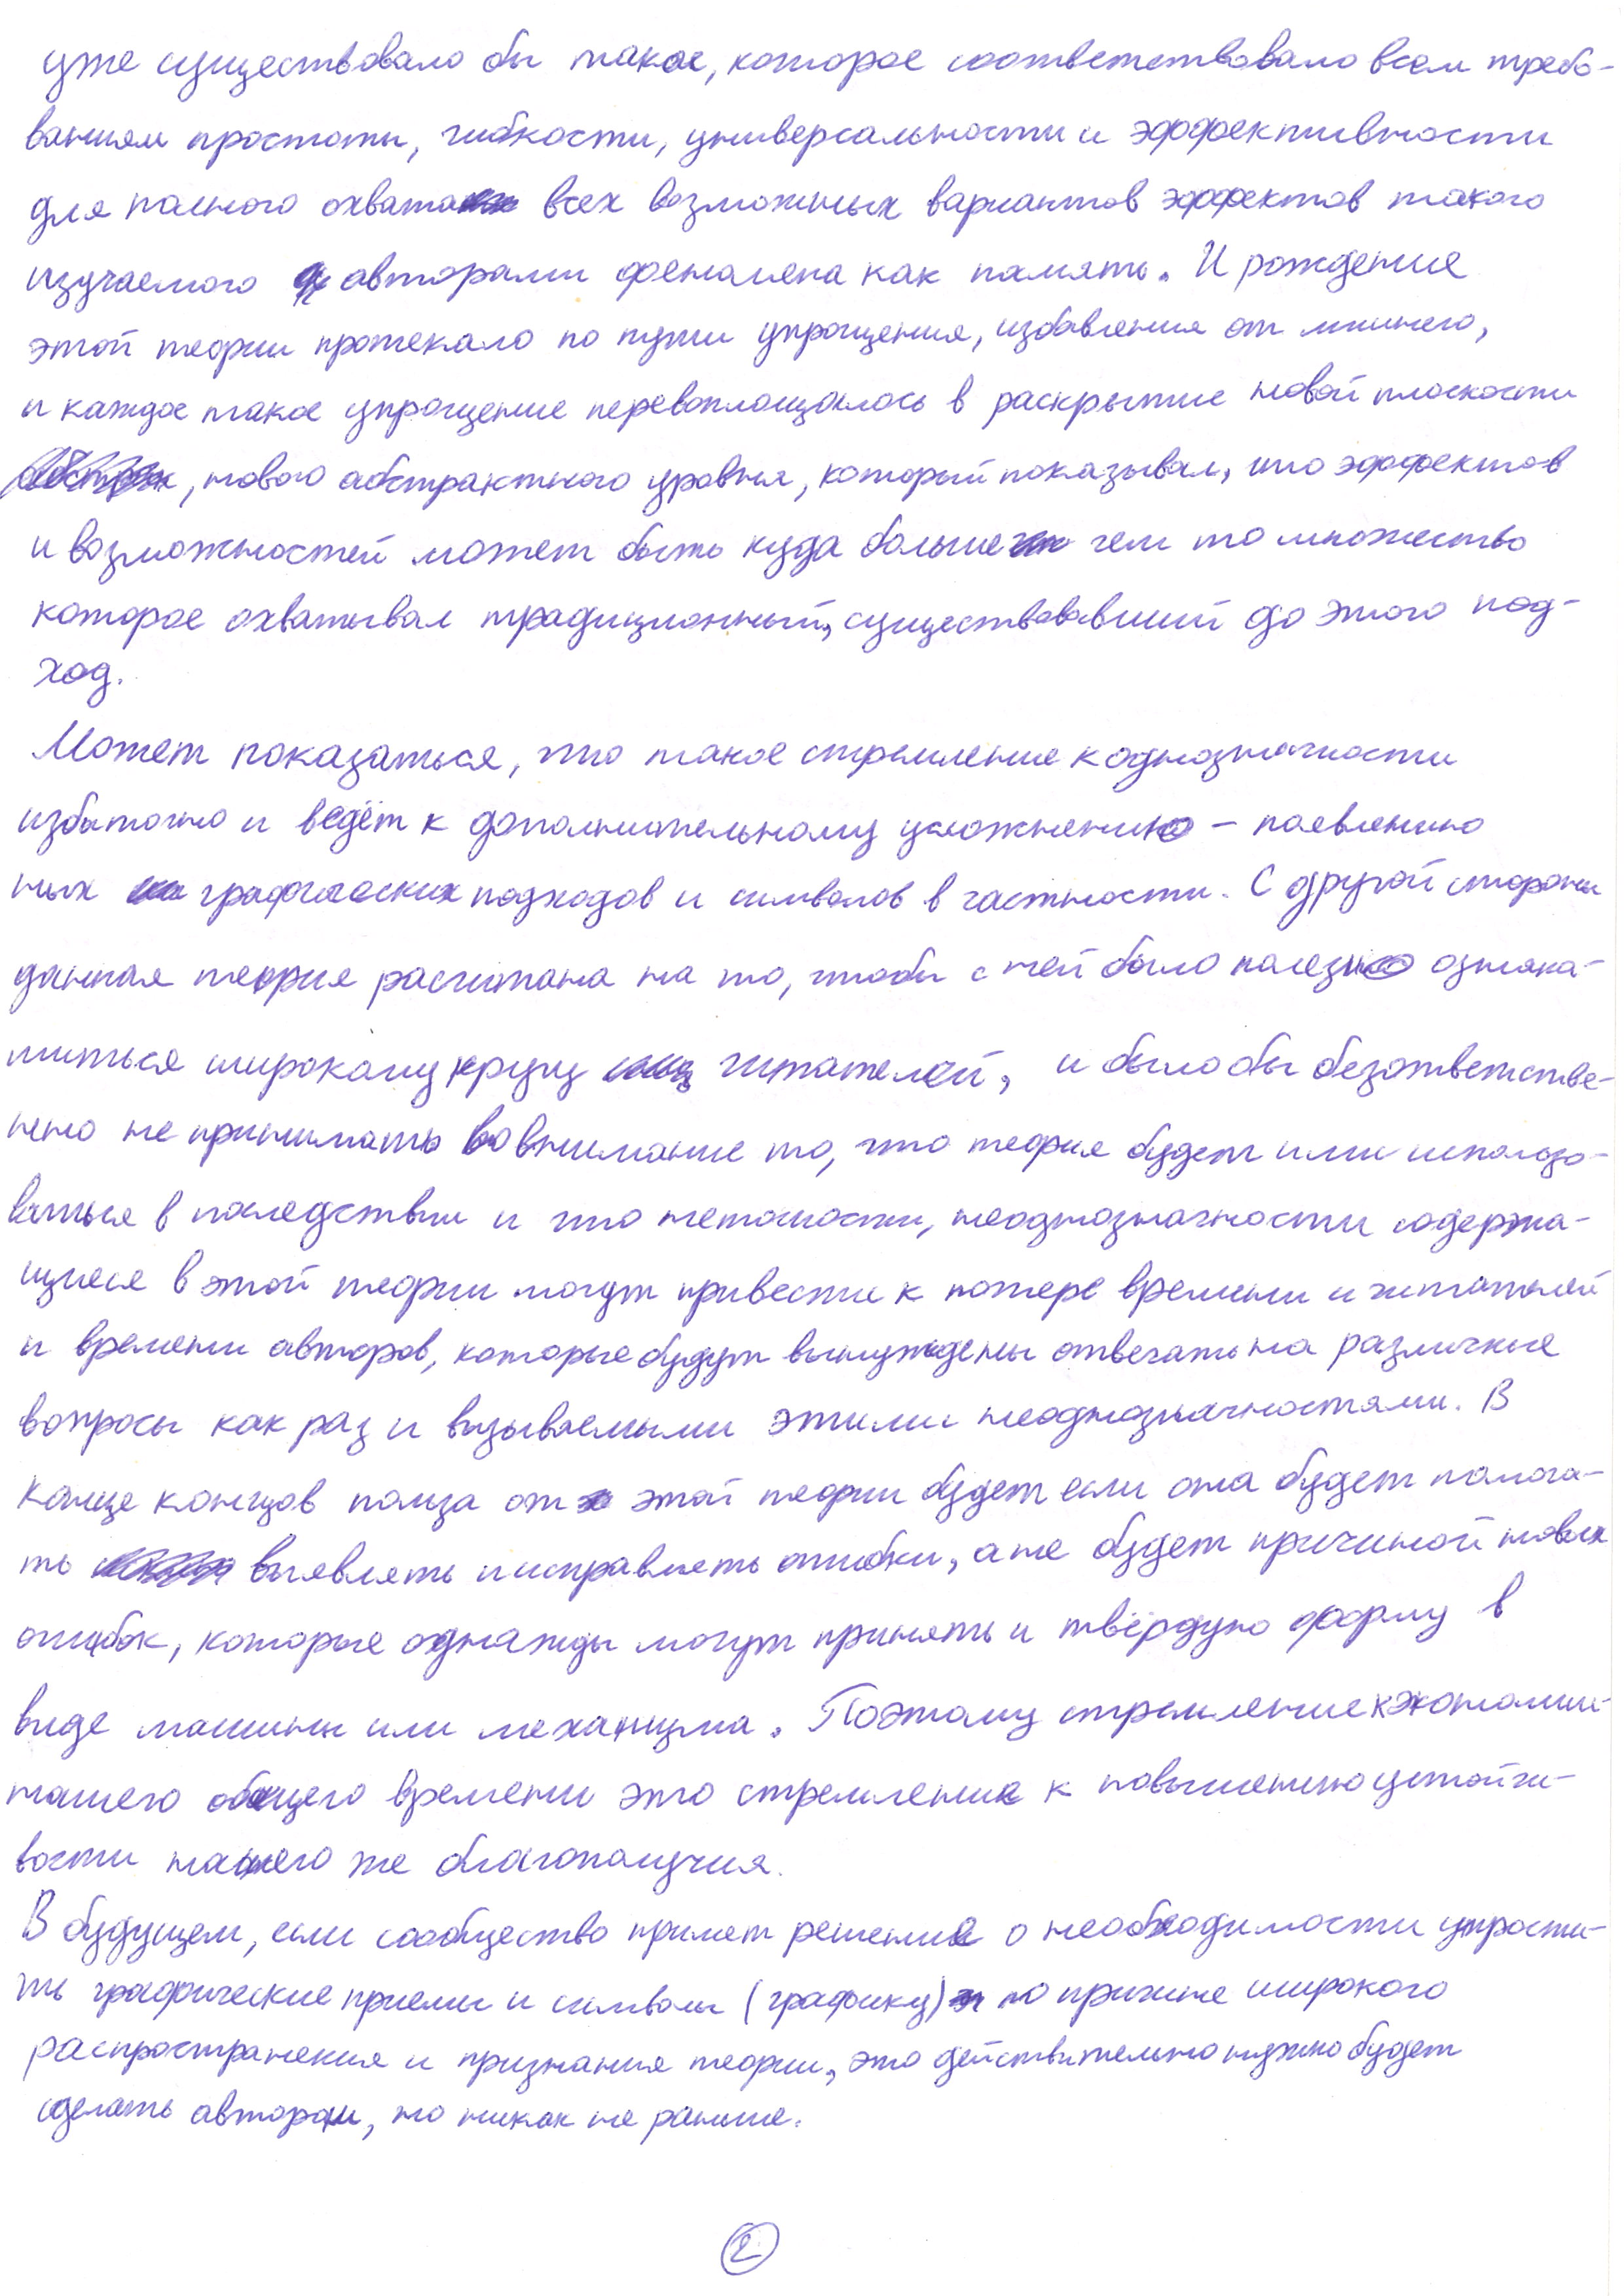 уже существовало бы такое, которое соответствовало всем требо-
ваниям простоты, гибкости, универсальности и эффективности
для полного охвата всех возможных вариантов эффектов такого
изучаемого авторами феномена как память. И рождение
этой теории протекало по пути упрощения, избавления от лишнего,
и каждое такое упрощение перевоплощалось в раскрытие новой плоскости
, нового абстрактного уровня, который показывал, что эффектов
и возможностей может быть куда больше чем то множество
которое охватывал традиционный, существовавший до этого под-
ход.
Может показаться, что такое стремление к однозначности
избыточно и ведёт к дополнительному усложнению – появлению
ных графических подходов и символов в частности. С другой стороны
данная теория расчитана на то, чтобы с ней было полезно ознако-
миться широкому кругу читателей, и было бы безответстве-
нно не принимать во внимание то, что теория будет ими использо-
ваться в последствии и что неточности, неоднозначности содержа-
щиеся в этой теории могут привести к потере времени и читателей
и времени авторов, которые будут вынуждены отвечать на различные
вопросы как раз и вызываемыми этими неоднозначностями. В
конце концов польза от этой теории будет если она будет помога-
ть выявлять и исправлять ошибки, а не будет причиной новых
ошибок, которые однажды могут принять и твёрдую форму в
виде машины или механизма. Поэтому стремление к экономии
нашего общего времени это стремление к повышению устойчи-
вости нашего же благополучия.
В будущем, если сообщество примет решение о необходимости упрости-
ть графические приемы и символы (графику) по причине широкого
распространения и признания теории, это действительно нужно будет
сделать авторам, но никак не раньше.
2